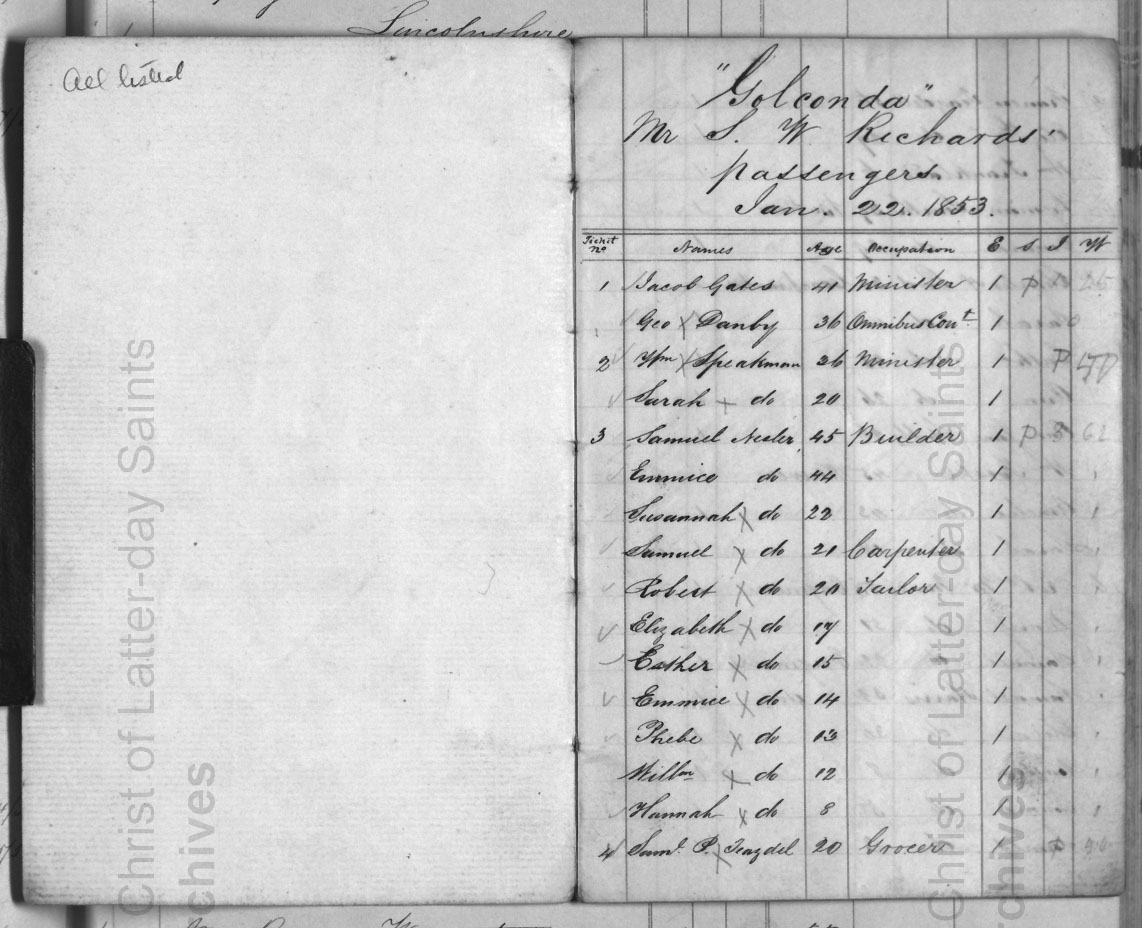 Lincolnshire
All listed
"Golconda"
Mr S. W. Richards'
passengers
Jan. 22. 1853.
Ticket no Names Age Occupation E S I W
1 Jacob Gates 41 Minister 1 P
Geo X Danby 36 Omnibus Cont 1
2 Wm X Speakman 26 Minister 1 P
Sarah do 20 1
3 Samuel 45 Builder 1 P
Emmice do 44 1
Susannah X do 22 1
Samuel X do 21 Carpenter 1
Robert X do 20 Tailor 1
Elizabeth X do 17 1
Esther X do 15 1
Emmice X do 14 1
Phebe X do 13 1
Willm X do 12 1
Hannah X do 8 1
4 Saml. P. X 20 Grocer 1
Christ of Latter-day Saints
chives
Christ of Latter-day Saints
chives